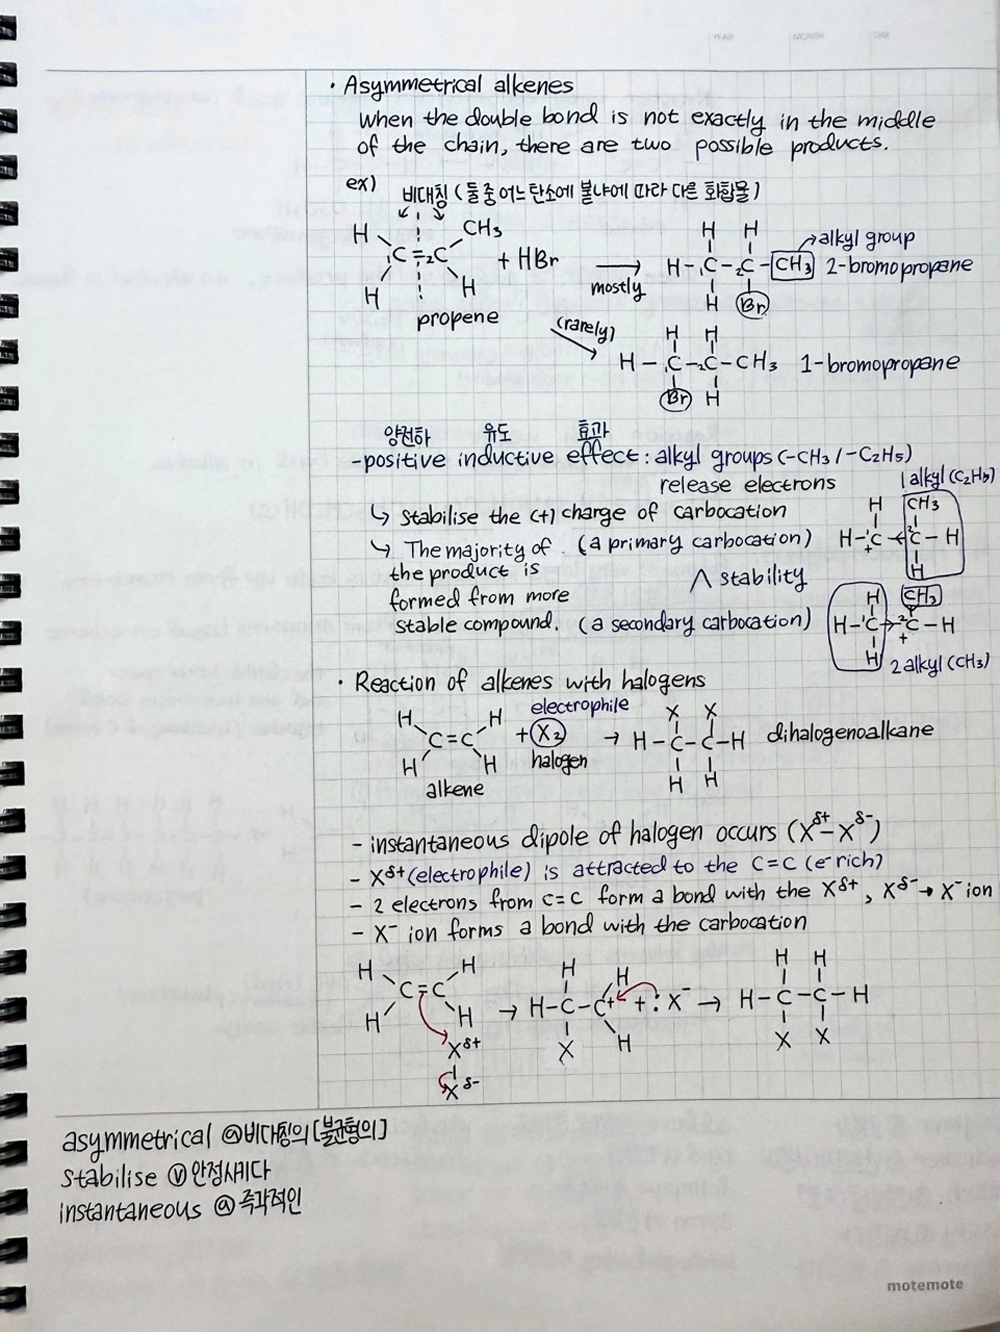 YEAR MONTH DAY
· Asymmetrical alkenes
when the double bond is not exactly in the middle
of the chain, there are two possible products.
ex) 비대칭 (둘 중 어느 탄소에 붙냐에 따라 다른 화합물)
H CH₃ H H alkyl group
₁C=₂C + HBr → mostly H-₁C-₂C-CH₃ 2-bromopropane
H H H Br
propene
(rarely) H H
H-₁C-₂C-CH₃ 1-bromopropane
Br H
양전하 유도 효과
-positive inductive effect : alkyl groups (-CH₃ / -C₂H₅)
release electrons
1 alkyl (C₂H₅)
↳ stabilise the (+) charge of carbocation
H CH₃
↳ The majority of (a primary carbocation) H-¹C ← ²C-H
+ H
the product is ∧ stability
formed from more
H CH₃
stable compound. (a secondary carbocation) H-¹C→²C-H
H +
2 alkyl (CH₃)
· Reaction of alkenes with halogens
electrophile
H H X X
C=C + X₂ → H-C-C-H dihalogenoalkane
H H halogen H H
alkene
- instantaneous dipole of halogen occurs (X^δ+-X^δ-)
- X^δ+ (electrophile) is attracted to the C=C (e⁻rich)
- 2 electrons from C=C form a bond with the X^δ+, X^δ- → X⁻ ion
- X⁻ ion forms a bond with the carbocation
H H H H H H
C=C → H-C-C+ + :X⁻ → H-C-C-H
H H X H X X
X^δ+
X^δ-
asymmetrical ⓐ 비대칭의 [불균형의]
stabilise ⓥ 안정시키다
instantaneous ⓐ 즉각적인
motemote